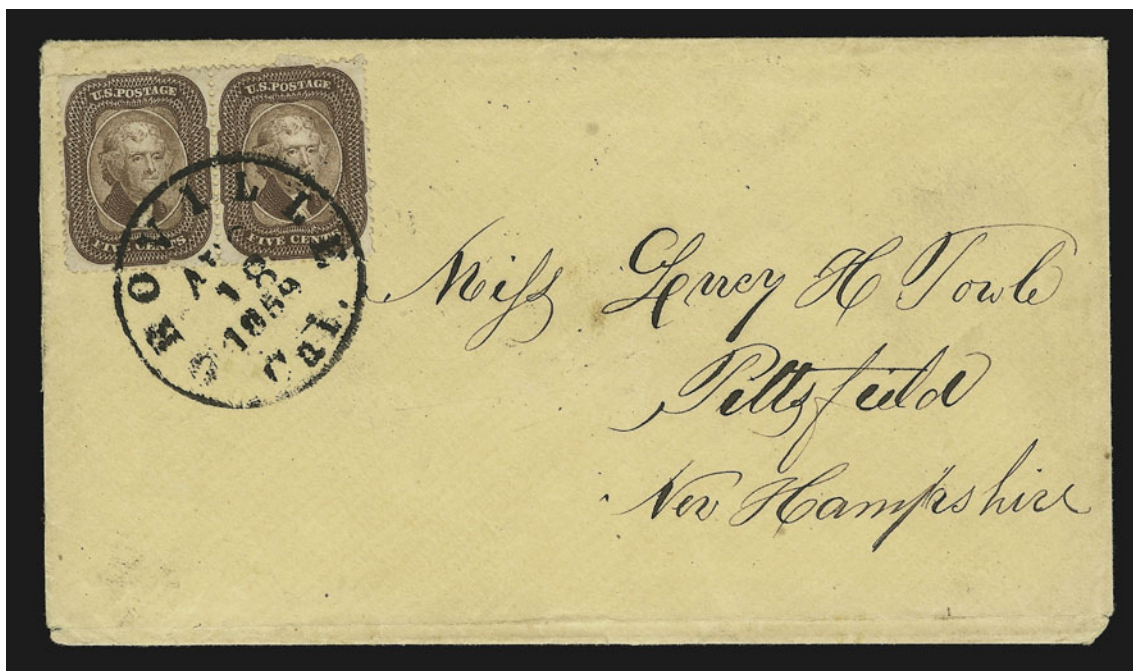 U.S. POSTAGE
FIVE CENTS
U.S. POSTAGE
FIVE CENTS
OROVILLE
18
1859
Cal.
Miss Lucy H Towle
Pittsfield
New Hampshire